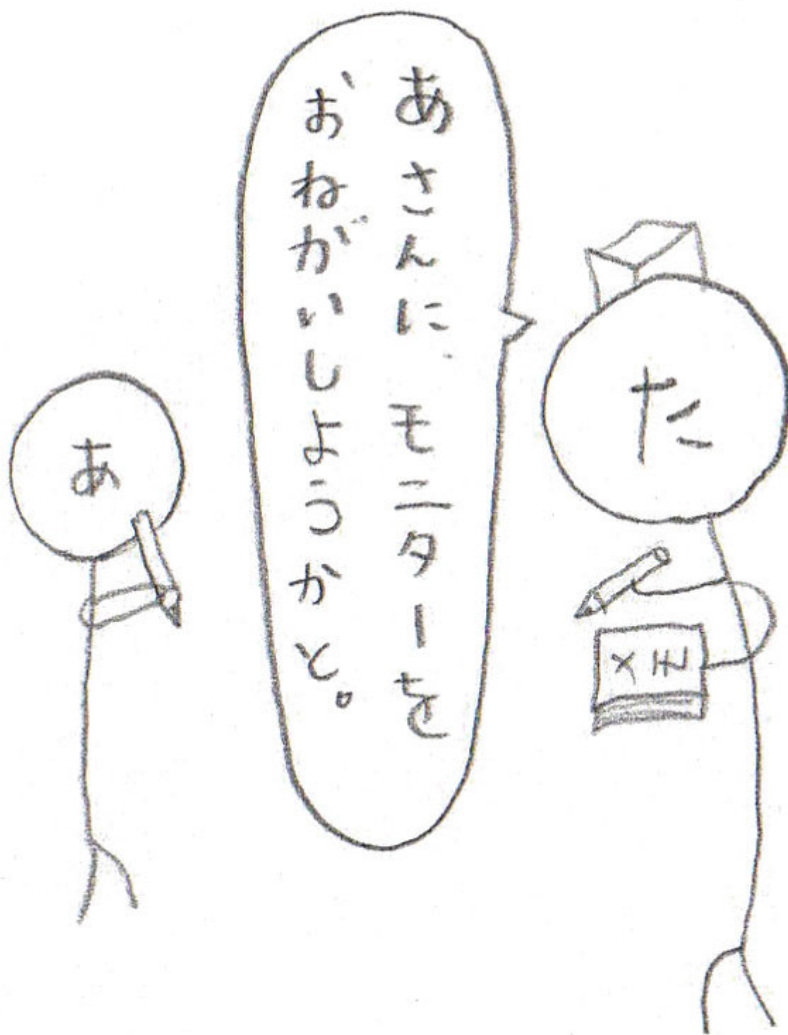 あさんに、モニターを
おねがいしようかと。
た
メモ
あ